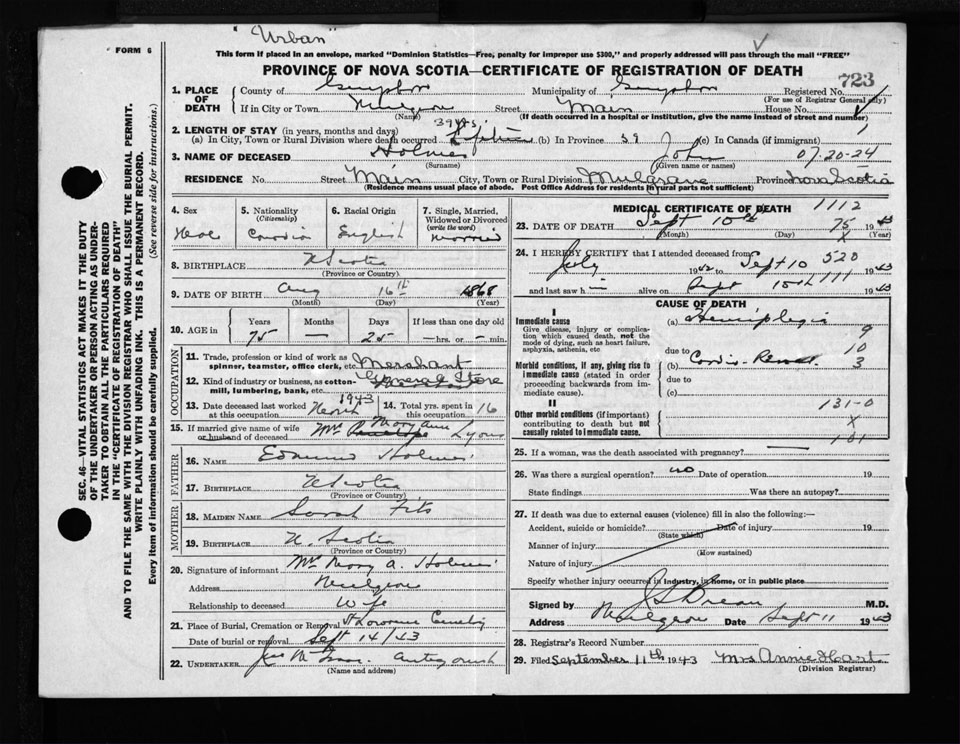 "Urban"
FORM 6
This form if placed in an envelope, marked "Dominion Statistics—Free, penalty for improper use $300," and properly addressed will pass through the mail "FREE"
PROVINCE OF NOVA SCOTIA—CERTIFICATE OF REGISTRATION OF DEATH
723
1. PLACE OF DEATH
County of Guysboro Municipality of Guysboro Registered No.
(For use of Registrar General only)
If in City or Town Mulgrave Street Main House No.
(Name) (If death occurred in a hospital or institution, give the name instead of street and number)
2. LENGTH OF STAY (in years, months and days) 39 yrs.
(a) In City, Town or Rural Division where death occurred (b) In Province 39 (c) In Canada (if immigrant)
3. NAME OF DECEASED Holmes John 07-20-24
(Surname) (Given name or names)
RESIDENCE No. Street Main City, Town or Rural Division Mulgrave Province Nova Scotia
(Residence means usual place of abode. Post Office Address for residents in rural parts not sufficient)
4. Sex
5. Nationality (Citizenship)
6. Racial Origin English
7. Single, Married, Widowed or Divorced (write the word) Married
8. BIRTHPLACE N Scotia
(Province or Country)
9. DATE OF BIRTH Aug 16th 1868
(Month) (Day) (Year)
10. AGE in Years Months Days If less than one day old
75 — 25 —hrs. or — min.
OCCUPATION
11. Trade, profession or kind of work as spinner, teamster, office clerk, etc. Merchant
12. Kind of industry or business, as cotton-mill, lumbering, bank, etc. General Store
13. Date deceased last worked at this occupation 1943
14. Total yrs. spent in this occupation 16
15. If married give name of wife or husband of deceased Mrs Mary Ann Lyons
FATHER
16. NAME Edmund Holmes
17. BIRTHPLACE N Scotia
(Province or Country)
MOTHER
18. MAIDEN NAME Sarah Fits
19. BIRTHPLACE N. Scotia
(Province or Country)
20. Signature of informant Mrs Mary A. Holmes
Address Mulgrave
Relationship to deceased Wife
21. Place of Burial, Cremation or Removal St Lawrence Cemetery
Date of burial or removal Sept 14/43
22. UNDERTAKER Antigonish
(Name and address)
MEDICAL CERTIFICATE OF DEATH 1112
23. DATE OF DEATH Sept 10th 75 1943
(Month) (Day) X (Year)
24. I HEREBY CERTIFY that I attended deceased from
July 1942 to Sept 10 520 1943
and last saw him alive on Sept 10th 1111 1943
CAUSE OF DEATH
I
Immediate cause
Give disease, injury or complication which caused death, not the mode of dying, such as heart failure, asphyxia, asthenia, etc
(a) Hemiplegia 9
due to 10
Morbid conditions, if any, giving rise to immediate cause (stated in order proceeding backwards from immediate cause).
(b) Cardio-Renal. 3
due to
(c)
II
Other morbid conditions (if important) contributing to death but not causally related to immediate cause.
131-0
X
131
25. If a woman, was the death associated with pregnancy? —
26. Was there a surgical operation? no Date of operation 19
State findings Was there an autopsy?
27. If death was due to external causes (violence) fill in also the following:—
Accident, suicide or homicide? Date of injury 19
(State which)
Manner of injury
(How sustained)
Nature of injury
Specify whether injury occurred in Industry, in home, or in public place
Signed by M.D.
Address Mulgrave Date Sept 11 1943
28. Registrar's Record Number
29. Filed September 11th 1943 Mrs Annie Hart
(Division Registrar)
SEC. 46—VITAL STATISTICS ACT MAKES IT THE DUTY
OF THE UNDERTAKER OR PERSON ACTING AS UNDER-
TAKER TO OBTAIN ALL THE PARTICULARS REQUIRED
IN THE "CERTIFICATE OF REGISTRATION OF DEATH"
AND TO FILE THE SAME WITH THE DIVISION REGISTRAR WHO SHALL ISSUE THE BURIAL PERMIT.
WRITE PLAINLY WITH UNFADING INK. THIS IS A PERMANENT RECORD.
Every item of information should be carefully supplied. (See reverse side for instructions.)